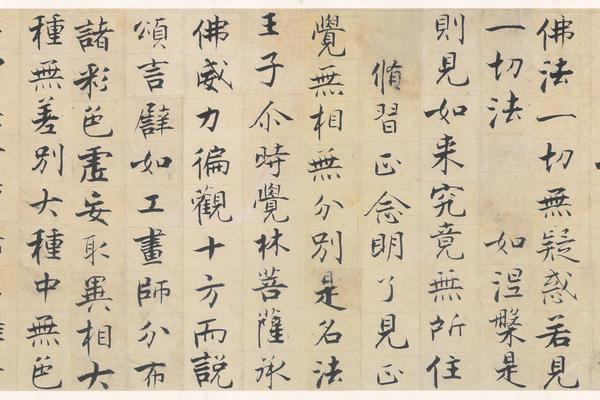 佛法一切無疑惑若見
一切法　如涅槃是
則見如来究竟無所住
脩習正念明了見正
覺無相無分別是名法
王子尒時覺林菩薩承
佛威力徧觀十方而說
頌言譬如工畫師分布
諸彩色虛妄取異相大
種無差別大種中無色